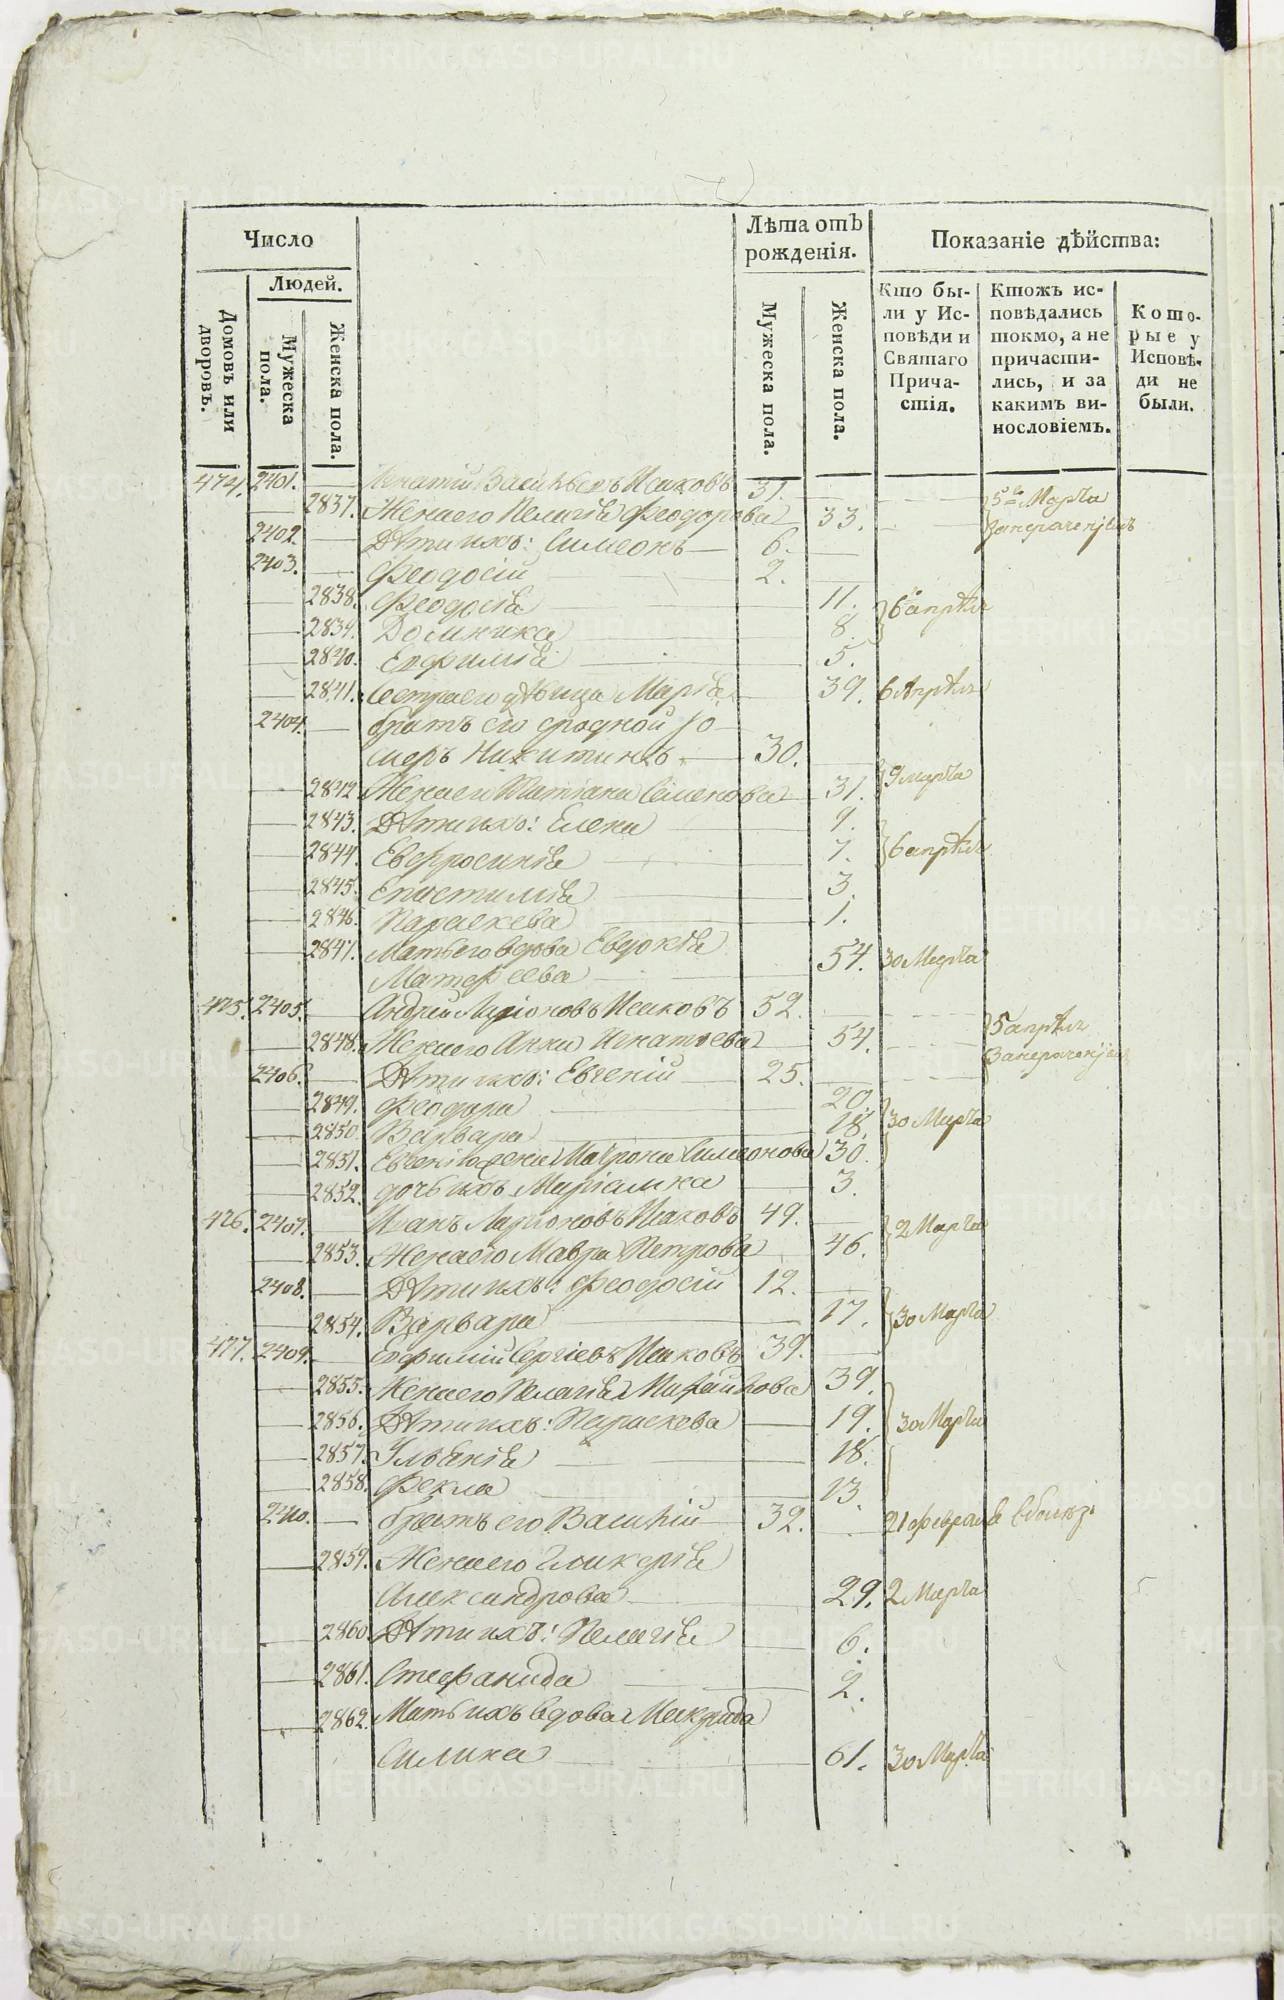 Число
Людей.
Домовъ или дворовъ.
Мужеска пола.
Женска пола.
Лѣта отъ рожденія.
Мужеска пола.
Женска пола.
Показаніе дѣйства:
Кто бы-
ли у Ис-
повѣди и
Святаго
Прича-
стія.
Ктожъ ис-
повѣдались
токмо, а не
причасти-
лись, и за
какимъ ви-
нословіемъ.
Кото-
рые у
Исповѣ-
ди не
были.
474. 2401. Игнатій Васильевъ Исаковъ 31. 5го Марта
2837. Жена его Пелагія Феодорова 33.
2402. Дѣти ихъ: Симеонъ 6.
2403. Феодосій 2.
2838. Феодосія 11. 6 апрѣля
2839. Домника 8.
2840. Евфимія 5.
2841. Сестра его дѣвица Марія 39. 6 Апрѣля
2404. братъ его сродной
Никитинъ 30.
2842. Жена его Татіана Семенова 31. 9 марта
2843. Дѣти ихъ: Елена 9.
2844. Евфросинія 7. 6 апрѣля
2845. Епистимія 3.
2846. Параскева 1.
2847. Мать его вдова Евдокія
Матфеева 54. 30 Марта
475. 2405. Андрей Ларіоновъ Исаковъ 52. 5 апрѣля
2848. Жена его Анна Игнатьева 54.
2406. Дѣти ихъ: Евгеній 25.
2849. Феодора 20. 30 Марта
2850. Варвара 18.
2851. Евгенія жена Матрона Симеонова 30.
2852. дочь ихъ Маріамна 3.
476. 2407. Иванъ Ларіоновъ Исаковъ 49. 2 Марта
2853. Жена его Мавра Петрова 46.
2408. Дѣти ихъ: Феодосій 12.
2854. Варвара 17. 30 Марта
477. 2409. Евфимій Сергіевъ Исаковъ 39.
2855. Жена его Пелагія Михайлова 39.
2856. Дѣти ихъ: Параскева 19. 30 Марта
2857. Ульянія 18.
2858. Фекла 13.
2410. братъ его Василій 32. 21 февраля
2859. Жена его Гликерія
Александрова 29. 2 Марта
2860. Дѣти ихъ: Пелагія 6.
2861. Стефанида 2.
2862. Мать ихъ вдова Макрида
61. 30 Марта
METRIKI.GASO-URAL.RU